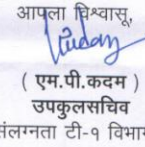 आपला विश्वासू,
( एम.पी.कदम )
उपकुलसचिव
संलग्नता टी-१ विभाग